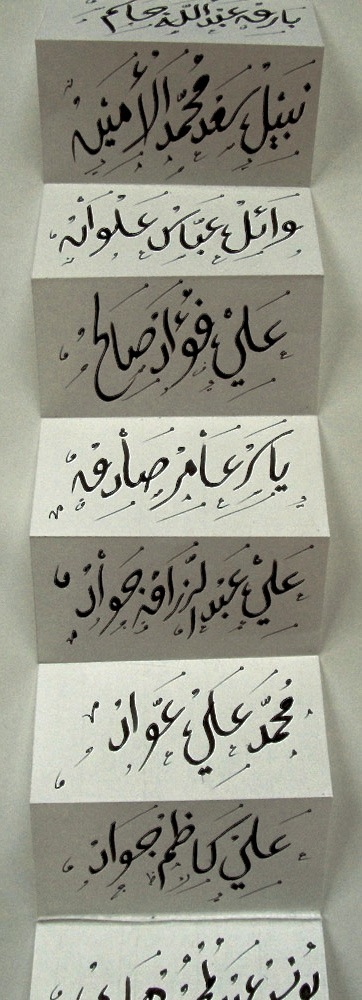 عبدالله
نبيل سعد محمد الأمين
وائل عباس علوان
علي فؤاد صالح
ياسر عامر صادق
علي عبدالرزاق جواد
محمد علي عواد
علي كاظم جواد